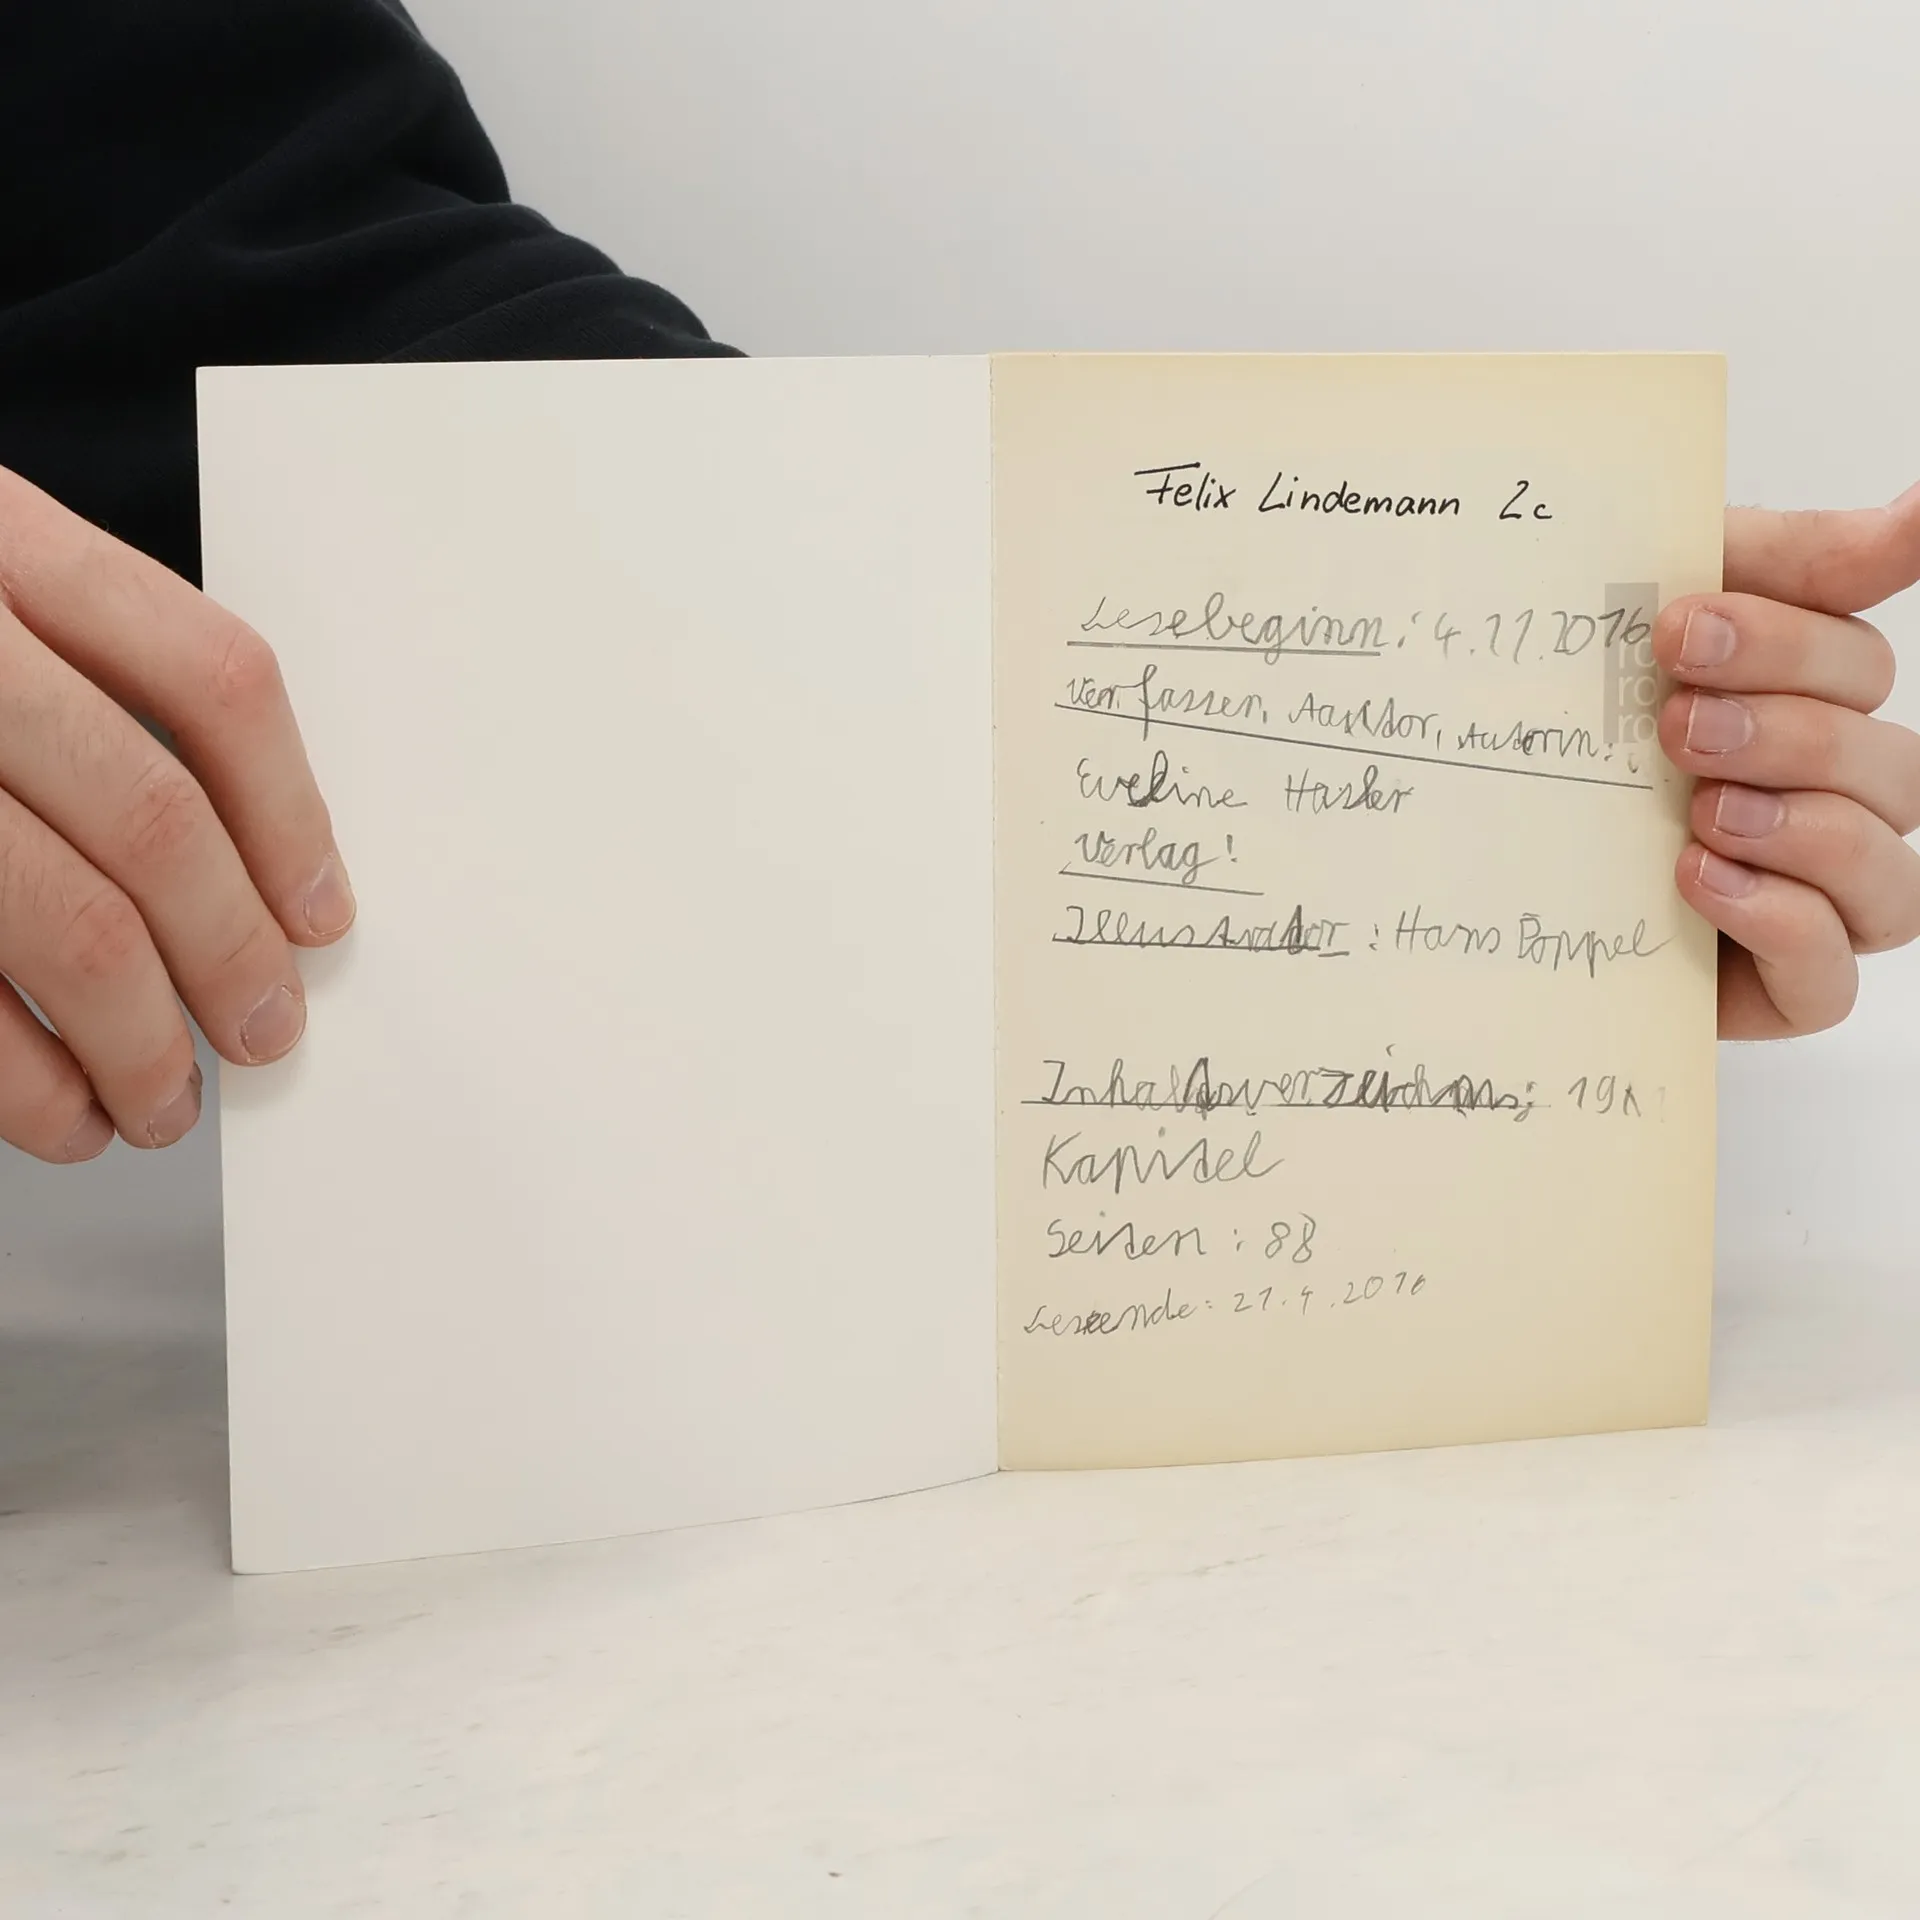 Felix Lindemann 2c
Lesebeginn: 4.11.2016
Verfasser, Autor, Autorin:
Eveline Hasler
Verlag!
Illustrator : Hans Poppel
Inhaltsverzeichnis: 19
Kapitel
Seiten : 88
Leseende: 21.4.2016
ro
ro
ro